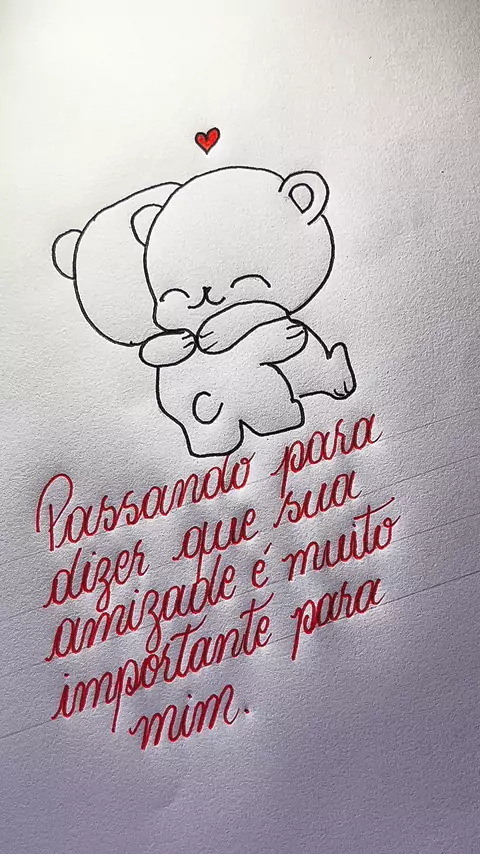 Passando para
dizer que sua
amizade é muito
importante para
mim.